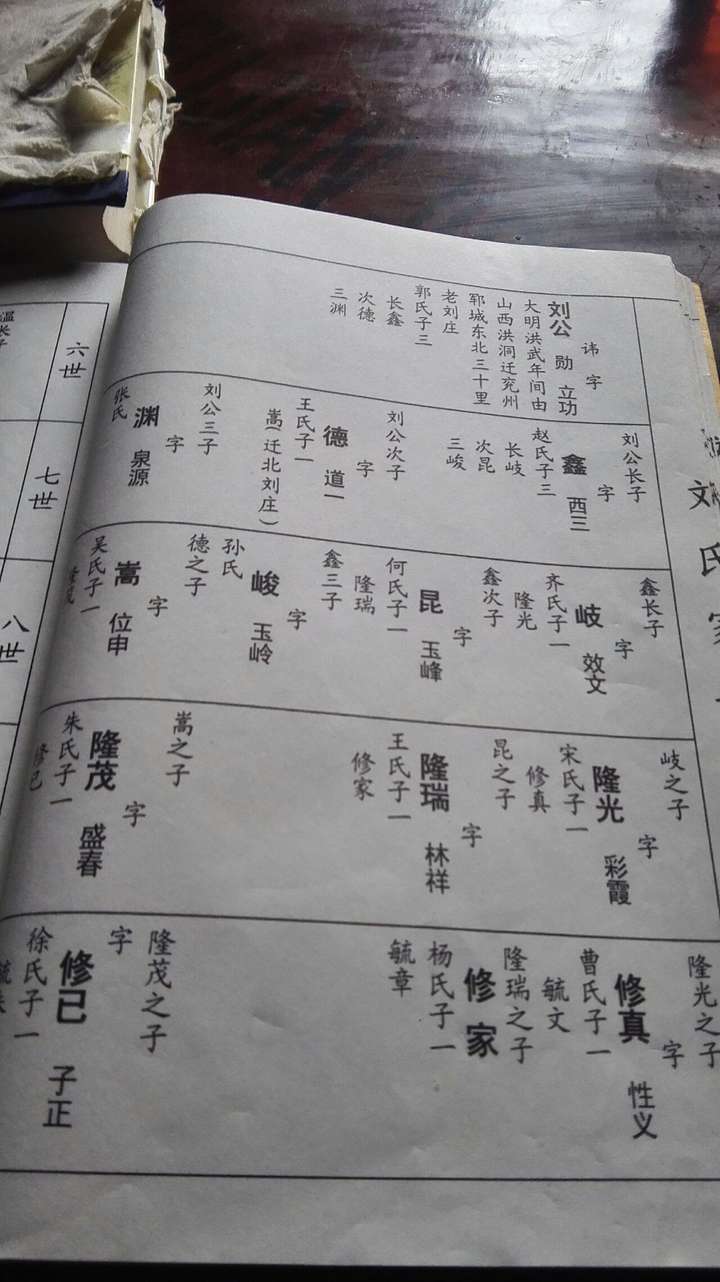 讳 字
刘公 勋 立功
大明洪武年间由
山西洪洞迁兖州
郓城东北三十里
老刘庄
郭氏子三
长鑫
次德
三渊
刘公长子
字
鑫 西三
赵氏子三
长岐
次昆
三峻
刘公次子
字
德 道一
王氏子一
嵩（迁北刘庄）
刘公三子
字
渊 泉源
张氏
鑫长子
字
岐 效文
齐氏子一
隆光
鑫次子
字
昆 玉峰
何氏子一
隆瑞
鑫三子
字
峻 玉岭
孙氏
德之子
字
嵩 位申
吴氏子一
隆茂
岐之子
字
隆光 彩霞
宋氏子一
修真
昆之子
字
隆瑞 林祥
王氏子一
修家
嵩之子
字
隆茂 盛春
朱氏子一
修己
隆光之子
字
修真 性义
曹氏子一
毓文
隆瑞之子
修家
杨氏子一
毓章
隆茂之子
字
修己 子正
徐氏子一
六世
七世
八世